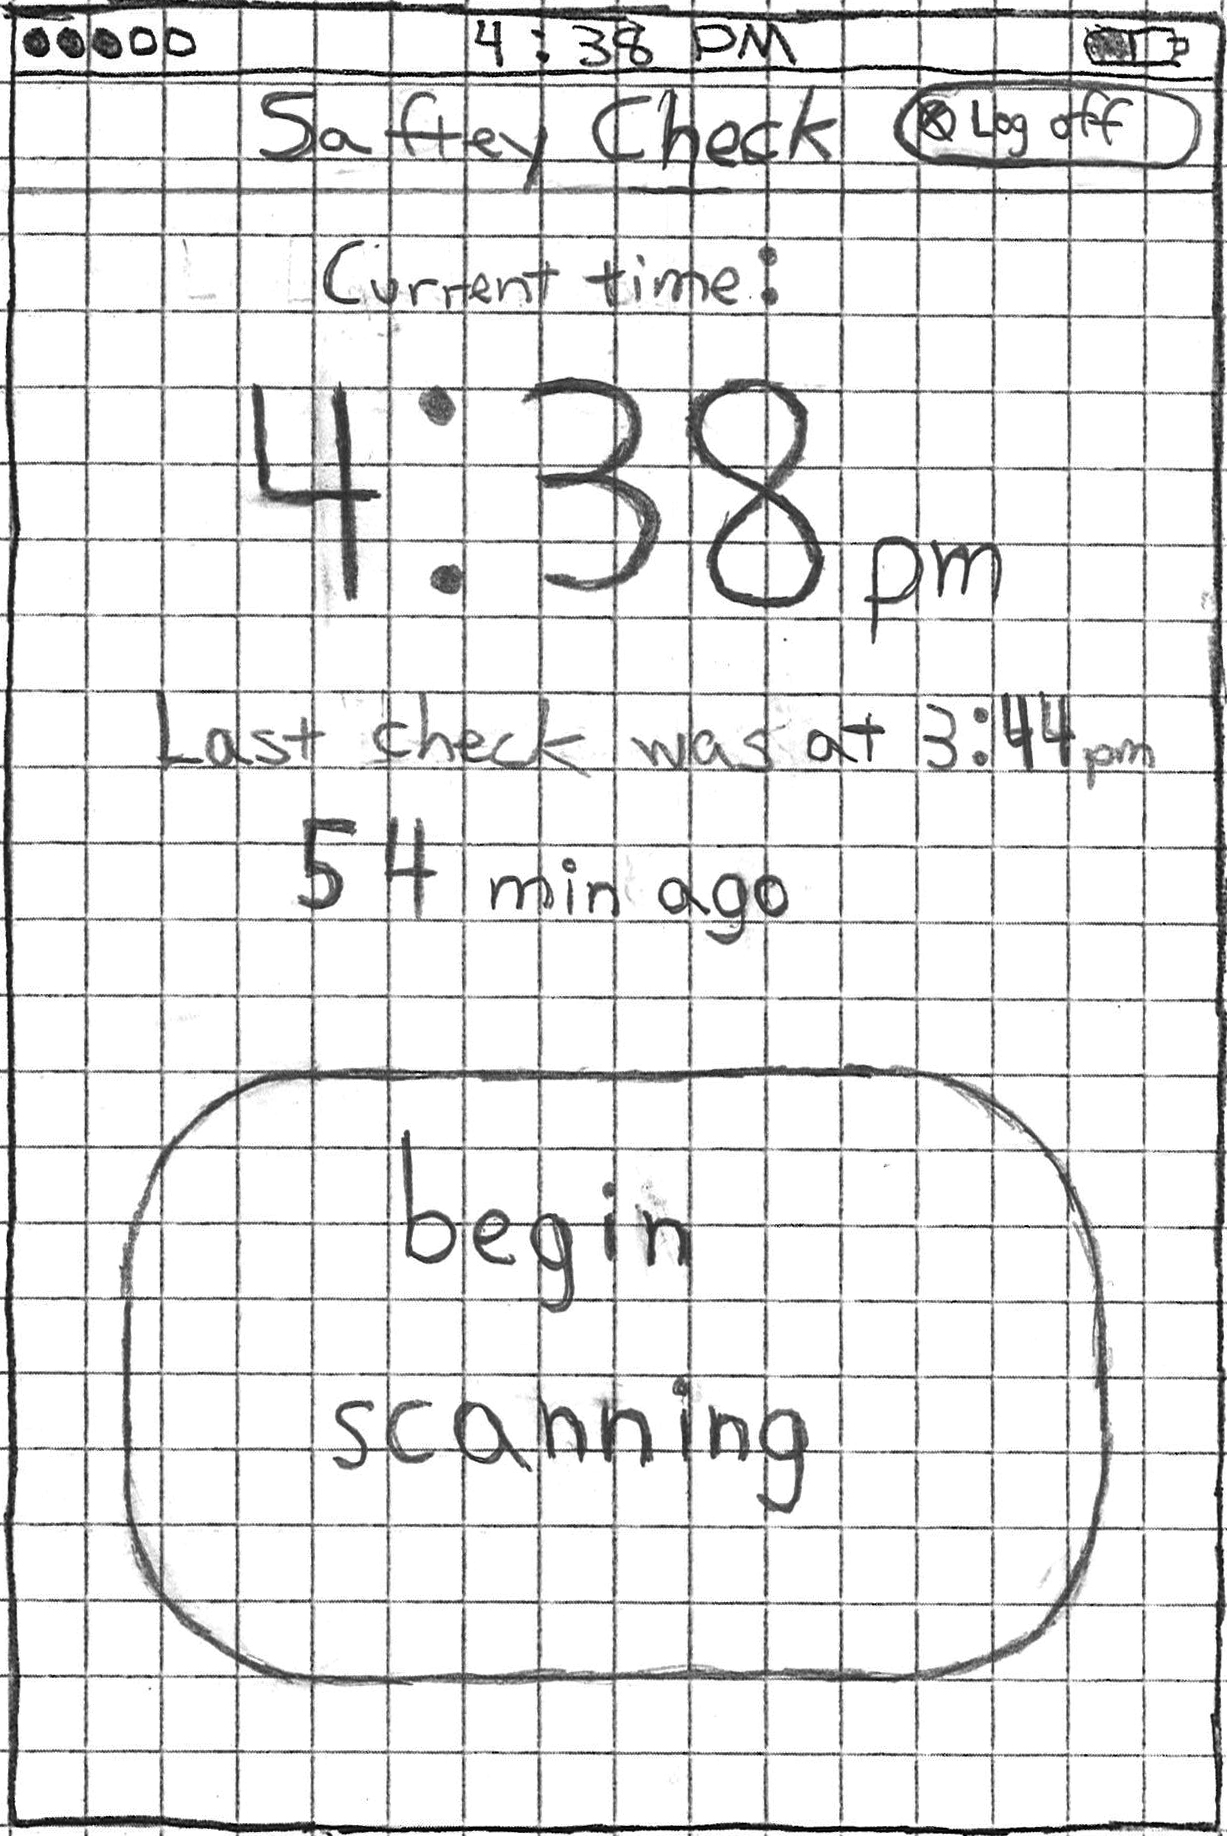 4:38 PM
Saftey Check
Log off
Current time:
4:38 pm
Last check was at 3:44 pm
54 min ago
begin
scanning